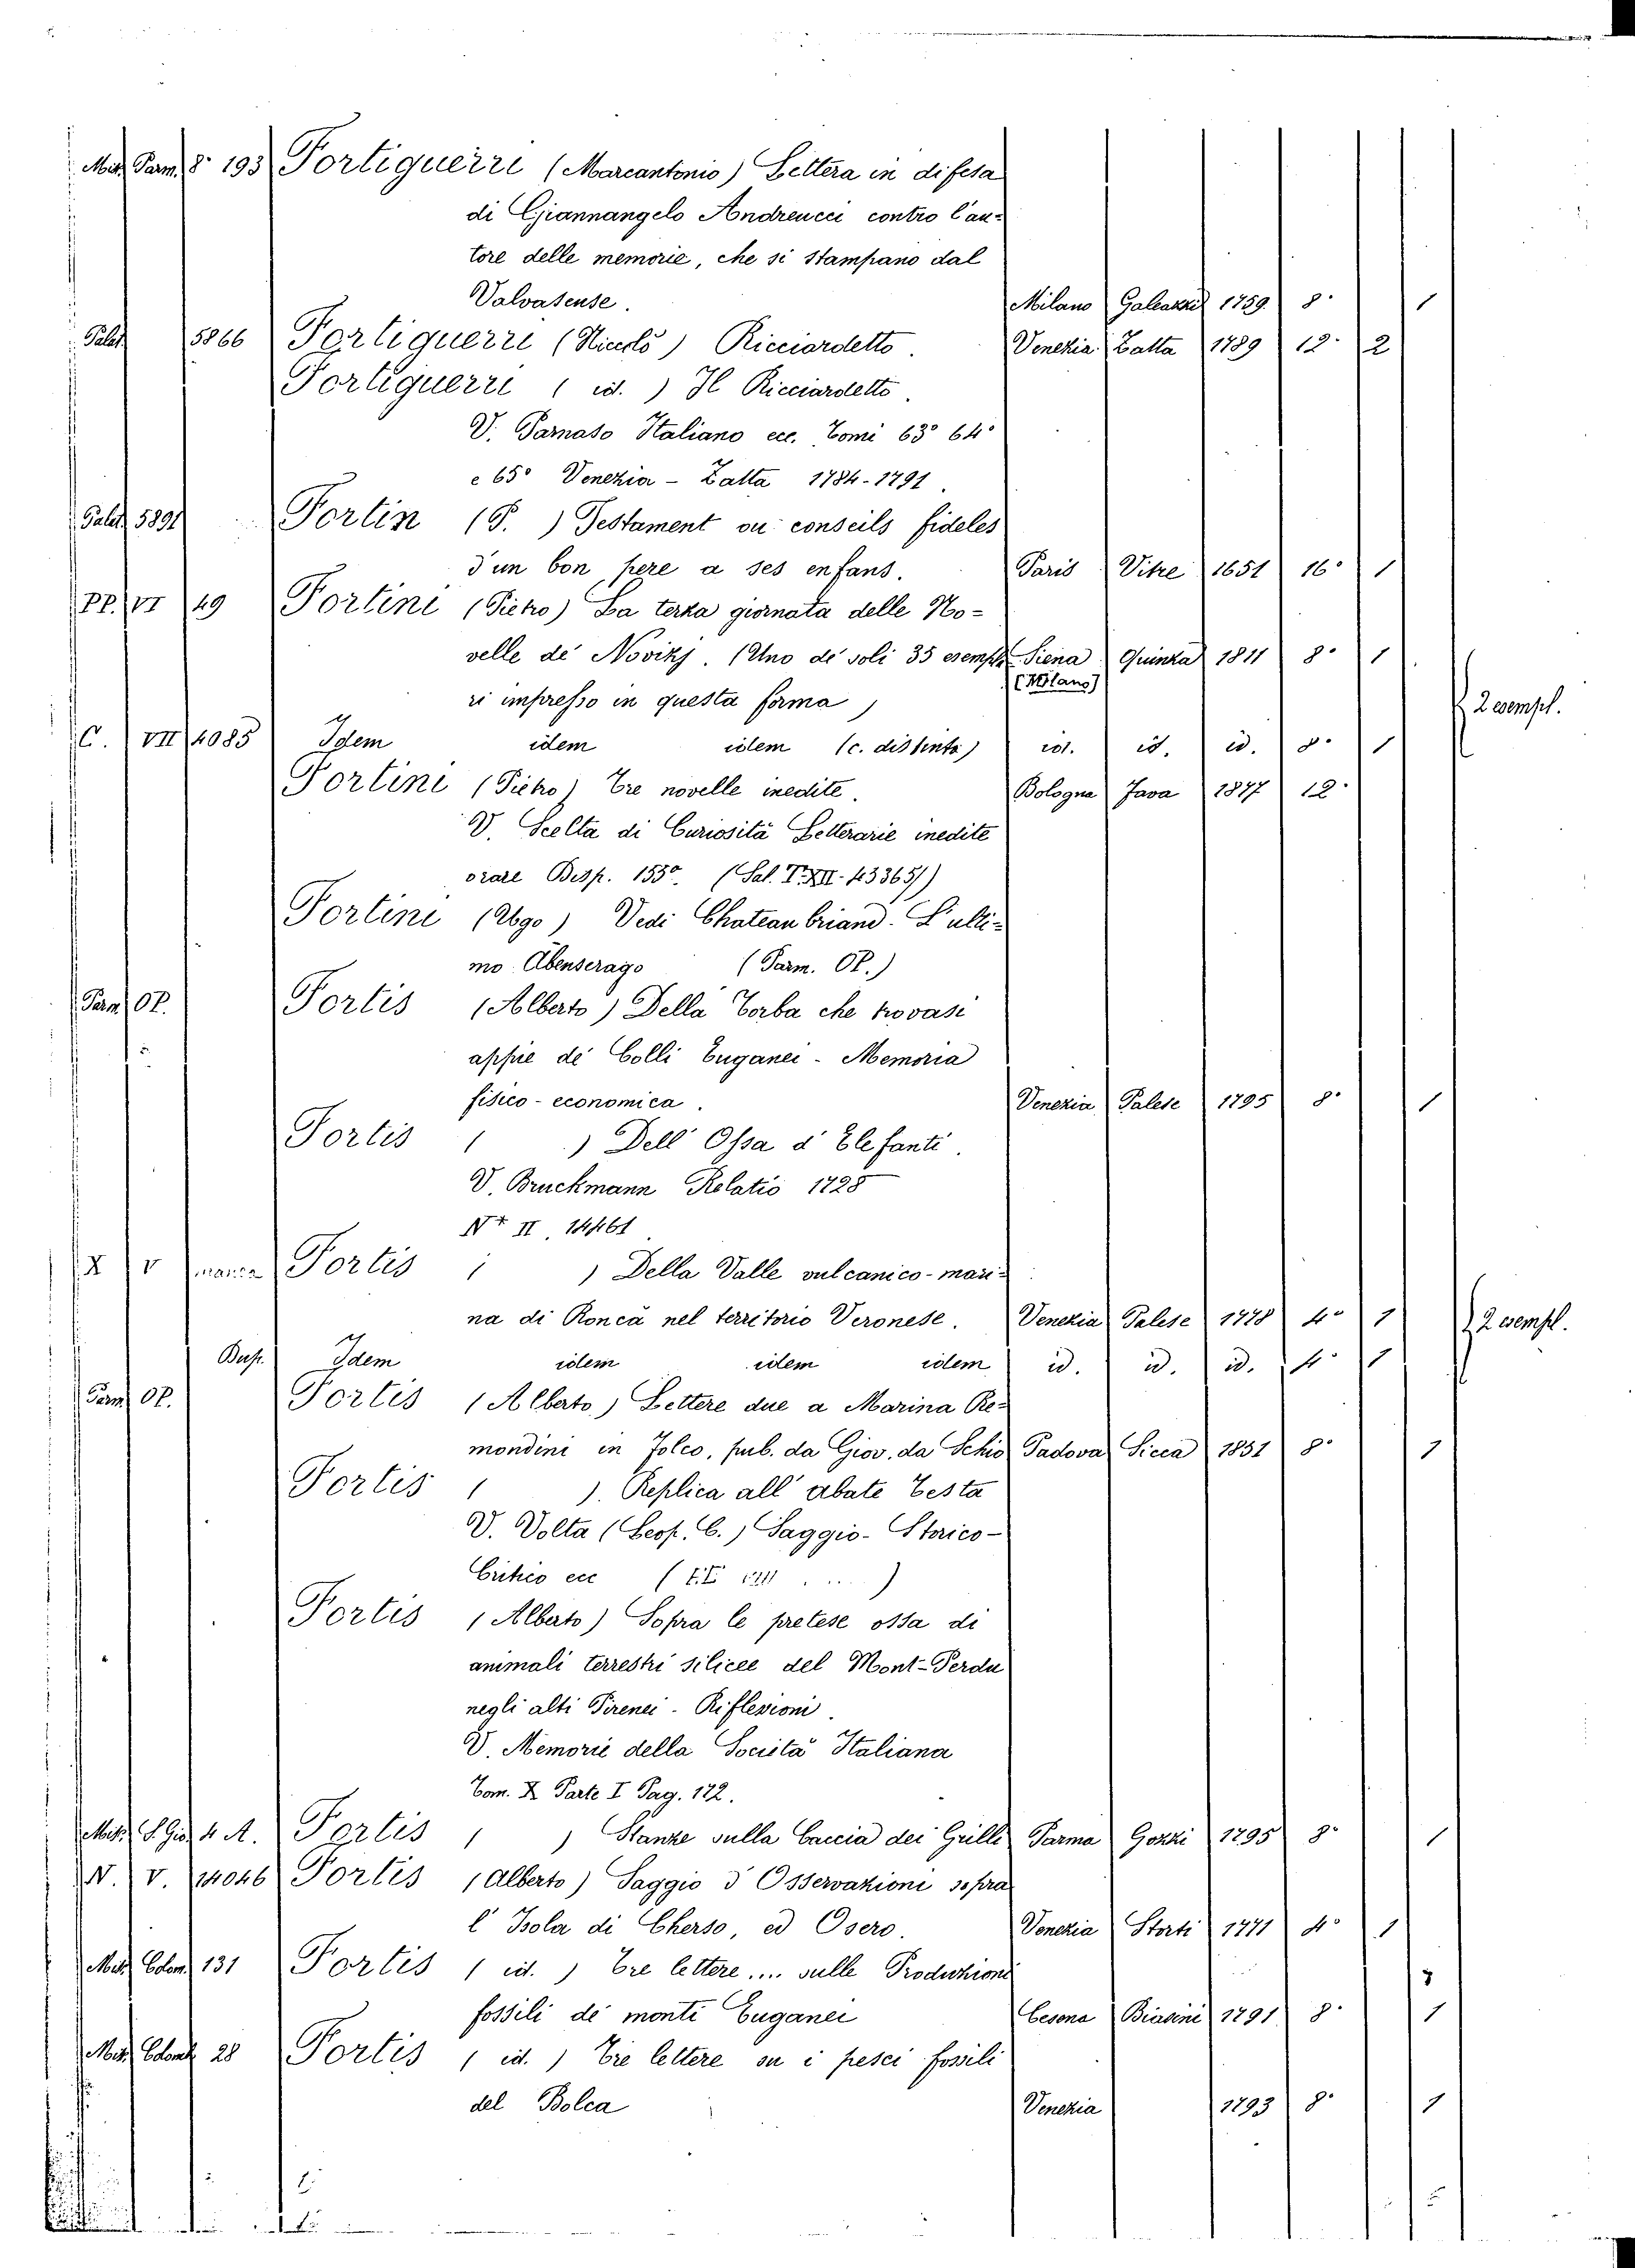 Mis. Parm. 8° 193 Fortiguerri (Marcantonio) Lettera in difesa
di Giannangelo Andreucci contro l'au=
tore delle memorie, che si stampano dal
Valvasense. Milano Galeazzi 1759. 8° 1
Palat 5866 Fortiguerri (Nicolò) Ricciardetto. Venezia Zatta 1789 12° 2
Fortiguerri ( id. ) Il Ricciardetto.
V. Parnaso Italiano ecc. Tomi 63° 64°
e 65° Venezia - Zatta 1784-1791.
Palat 5891 Fortin (P. ) Testament ou conseils fideles
d'un bon pere a ses enfans. Paris Vitre 1651 16° 1
PP. VI 49 Fortini (Pietro) La terza giornata delle No=
velle de' Novizj. (Uno de' soli 35 esempla= Siena Quinza 1811 8° 1
ri impresso in questa forma) [Milano]
2 esempl.
C. VII 4085 Idem idem idem (c. distinta) id. id. id. 8° 1
Fortini (Pietro) Tre novelle inedite. Bologna Fava 1877 12°
V. Scelta di Curiosità Letterarie inedite
o rare Disp. 155° (Sal. T.XII-43365/)
Fortini (Ugo) Vedi Chateaubriand. L'ulti=
mo Abenserago (Parm. OP.)
Parm OP. Fortis (Alberto) Della Torba che trovasi
appie de' Colli Euganei - Memoria
fisico-economica. Venezia Palese 1795 8° 1
Fortis ( ) Dell' Ossa d' Elefanti.
V. Bruckmann Relatio 1728
N+ II. 14461
X V manca Fortis ( ) Della Valle vulcanico-mari=
na di Roncà nel territorio Veronese. Venezia Palese 1778 4° 1
2 esempl.
Dup. Idem idem idem idem id. id. id. 4° 1
Parm OP. Fortis (Alberto) Lettere due a Marina Re=
mondini in Jolco, pub. da Giov. da Schio Padova Sicca 1851 8° 1
Fortis ( ). Replica all' abate Testa
V. Volta (Leop. C.) Saggio-Storico-
Critico ecc
Fortis (Alberto) Sopra le pretese ossa di
animali terrestri silicee del Mont-Perdu
negli alti Pirenei. Riflessioni.
V. Memorie della Società Italiana
Tom. X Parte I Pag. 172.
Misc. S. Gio. 4 A. Fortis ( ) Stanze sulla Caccia dei Grilli Parma Gozzi 1795 8° 1
N. V. 14046 Fortis (Alberto) Saggio d' Osservazioni sopra
l' Isola di Cherso, ed Osero. Venezia Storti 1771 4° 1
Misc. Colom. 131 Fortis ( id. ) Tre lettere.... sulle Produzioni
fossili de' monti Euganei Cesena Biasini 1791. 8° 1
Misc. Colomb. 28 Fortis ( id. ) Tre lettere su i pesci fossili
del Bolca Venezia 1793 8° 1